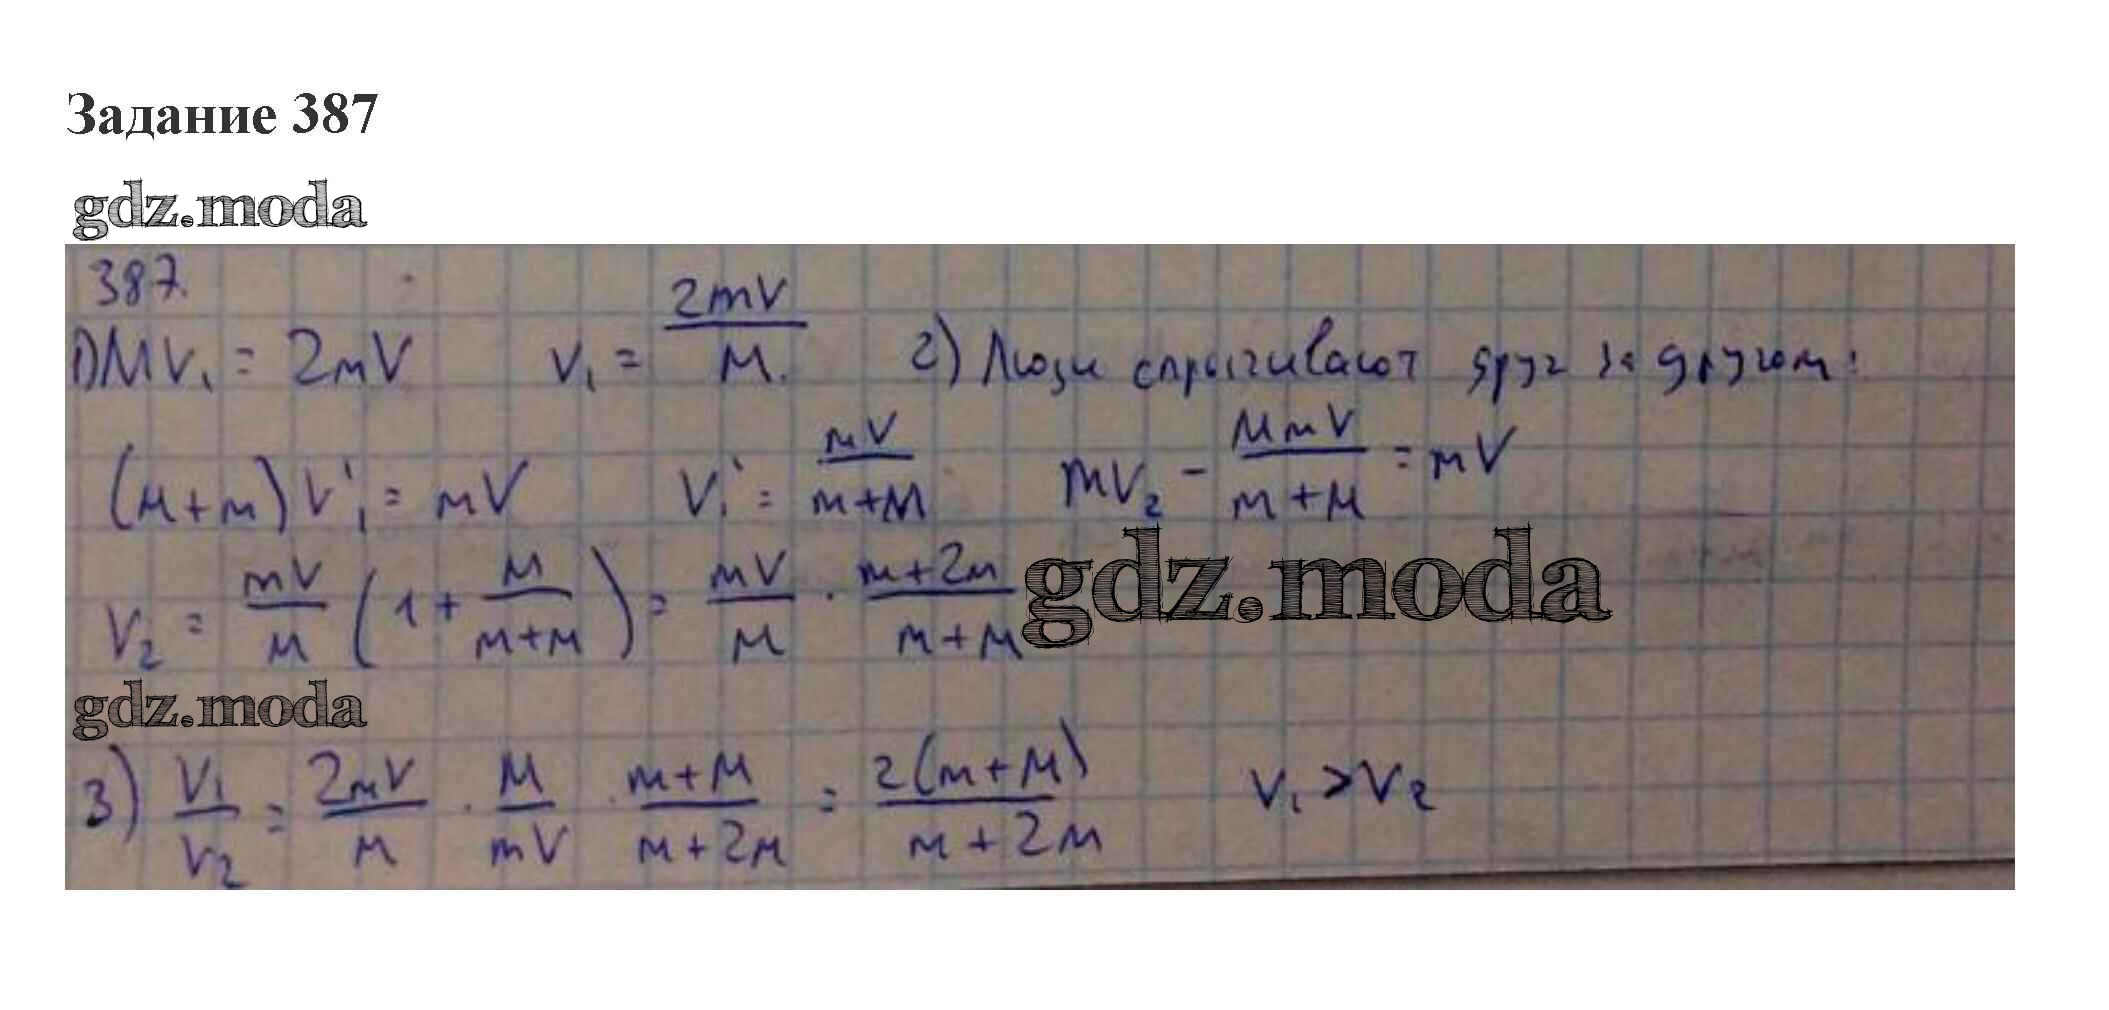 Задание 387
gdz.moda
387.
1) MV₁ = 2mV    V₁ = 2mV/M.    2) Люди спрыгивают друг за другом:
(M+m)V₁' = mV    V₁' = mV/(m+M)    mV₂ - MmV/(m+M) = mV
V₂ = mV/M (1 + M/(m+M)) = mV/M · (m+2M)/(m+M)
gdz.moda
gdz.moda
3) V₁/V₂ = 2mV/M · M/mV · (m+M)/(m+2M) = 2(m+M)/(m+2M)    V₁ > V₂